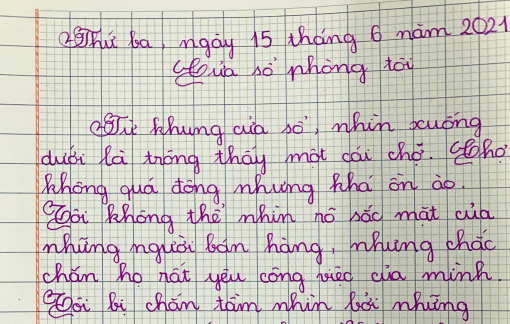 Thứ ba, ngày 15 tháng 6 năm 2021
Cửa sổ phòng tôi
Từ khung cửa sổ, nhìn xuống
dưới là trông thấy một cái chợ. Chợ
không quá đông nhưng khá ồn ào.
Tôi không thể nhìn rõ sắc mặt của
những người bán hàng, nhưng chắc
chắn họ rất yêu công việc của mình.
Tôi bị chắn tầm nhìn bởi những